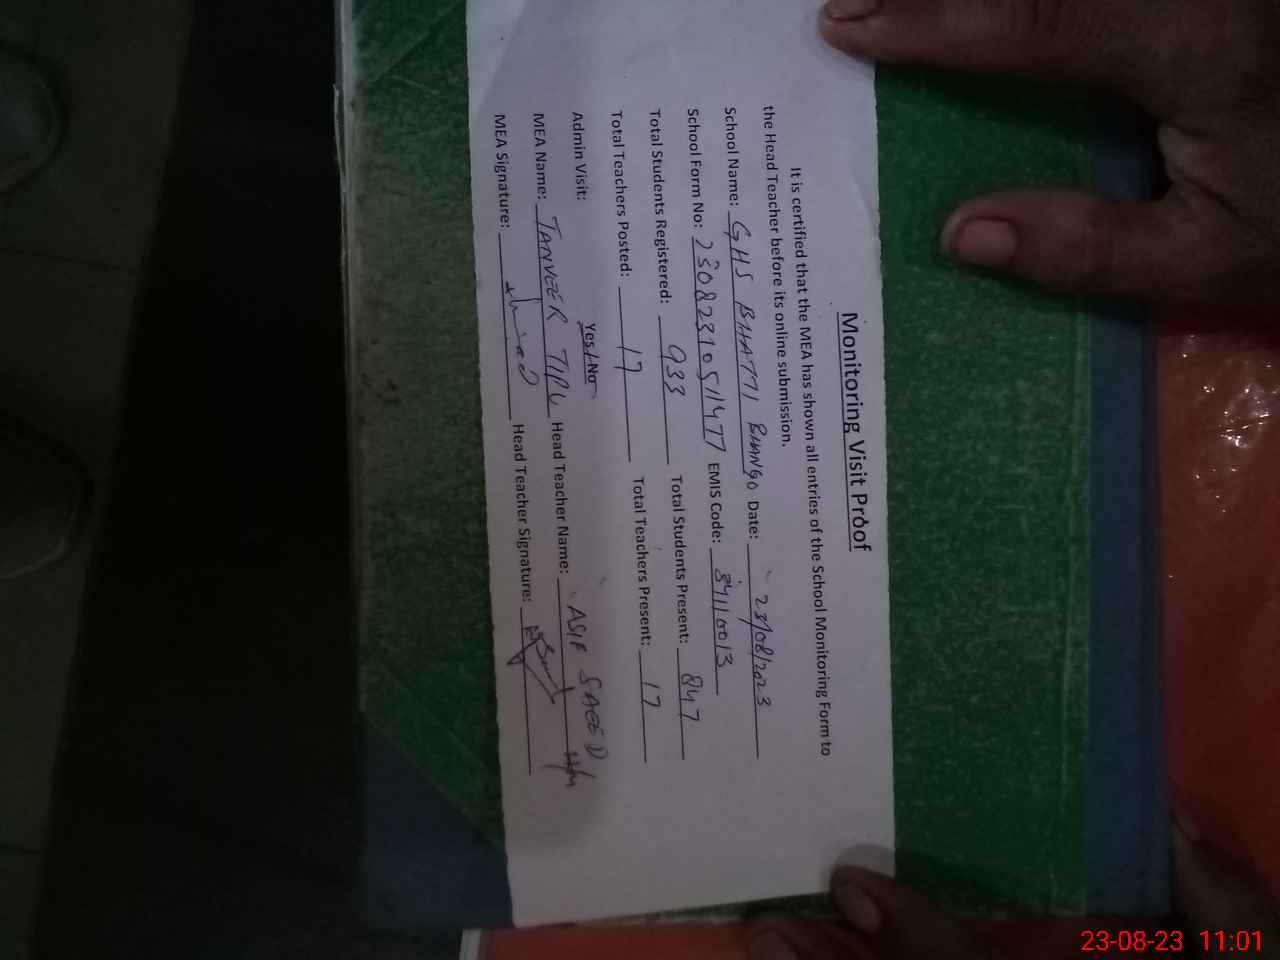 Monitoring Visit Proof
It is certified that the MEA has shown all entries of the School Monitoring Form to
the Head Teacher before its online submission.
School Name: GHS BHATTI BHANGO Date: 23/08/2023
School Form No: 23082310511477 EMIS Code: 34110013
Total Students Registered: 933 Total Students Present: 847
Total Teachers Posted: 17 Total Teachers Present: 17
Admin Visit: Yes / No
MEA Name: TANVEER TIPU Head Teacher Name: ASIF SAEED H/M
MEA Signature: Head Teacher Signature:
23-08-23 11:01